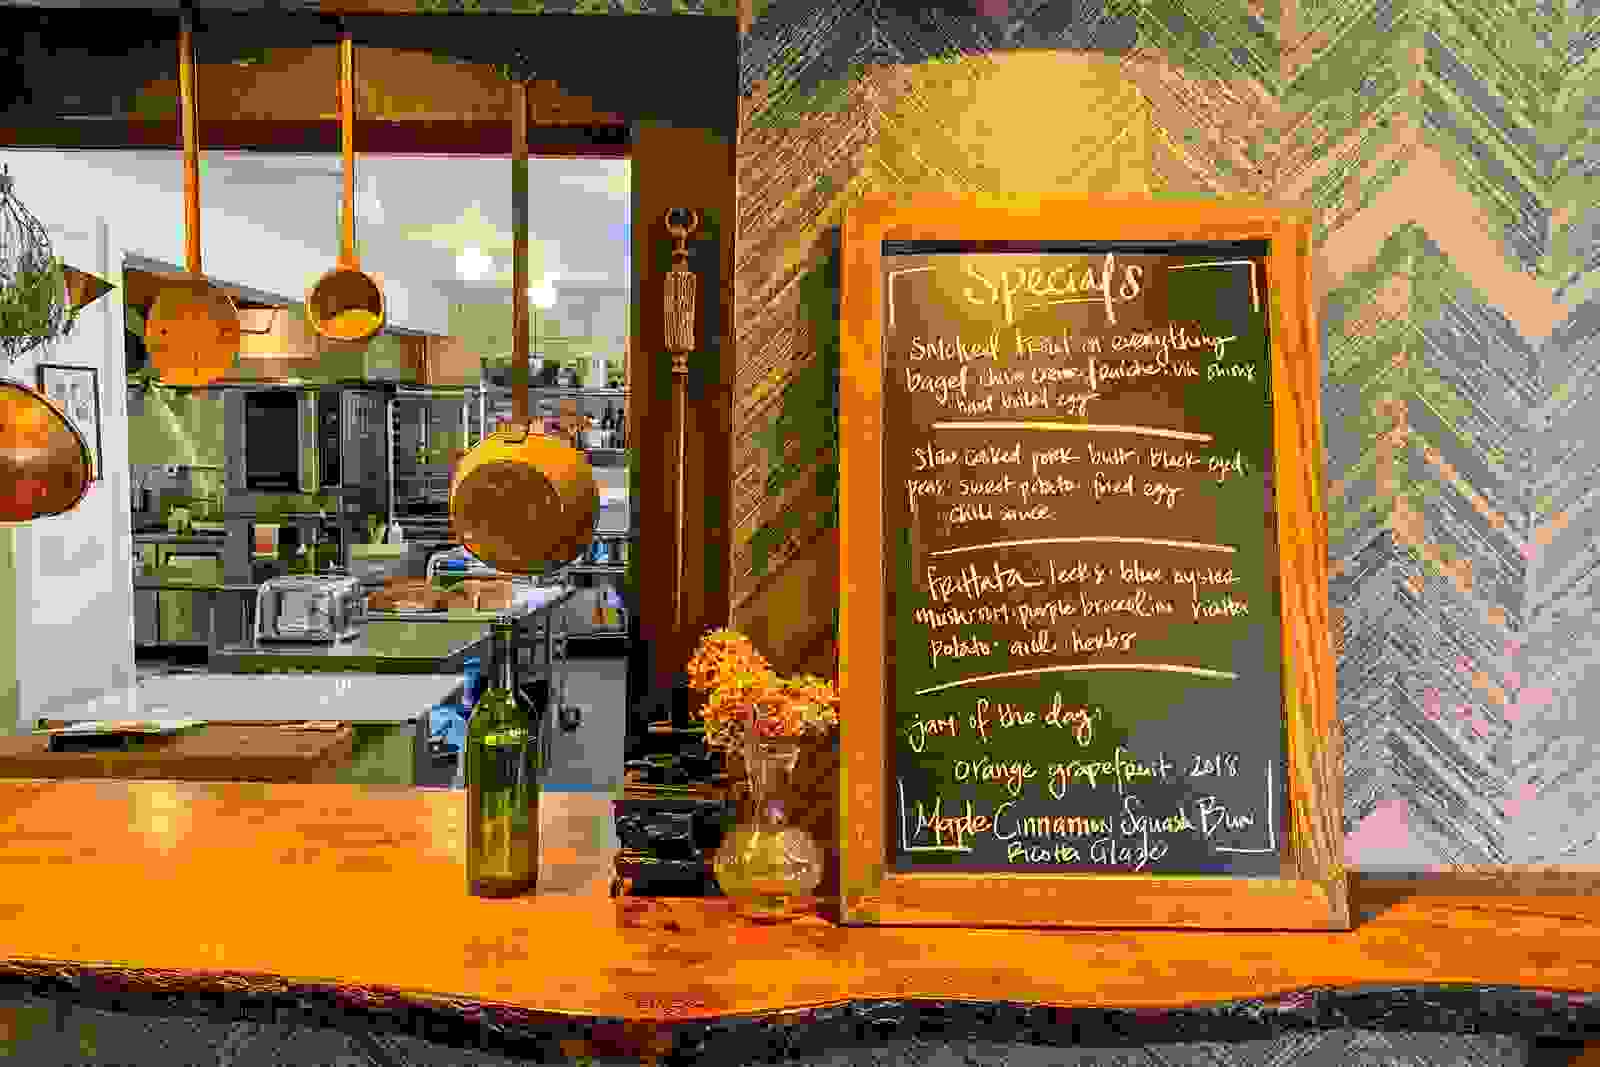 Specials
Smoked trout on everything
bagel chive creme fraiche
hard boiled egg
Slow cooked pork butt. black eyed
peas. sweet potato. fried egg
chili sauce
frittata leeks. blue oyster
mushroom. purple broccolini ricotta
potato. aioli. herbs
jam of the day:
orange grapefruit. 2018
Maple Cinnamon Squash Bun
Ricotta Glaze